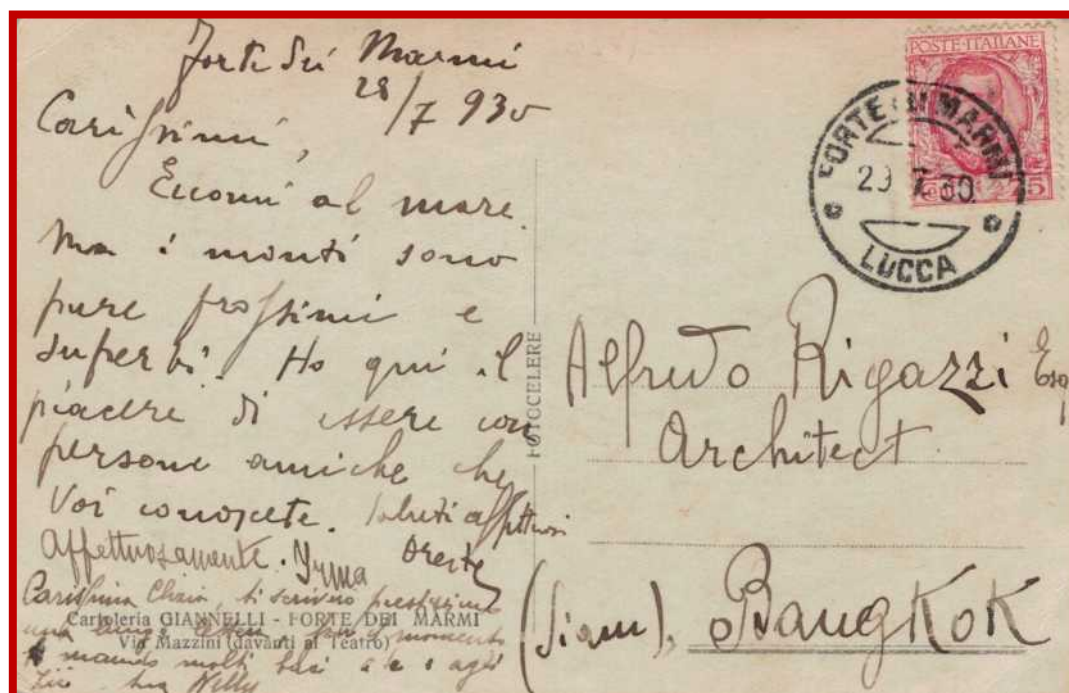 Forte dei Marmi
28/7 930
Carissimi,
Eccomi al mare.
Ma i monti sono
pure prossimi e
superbi. Ho qui il
piacere di essere con
persone amiche che
Voi conoscete. Saluti affettuosi
Affettuosamente. Irma Oreste
Carissima Clara, ti scriverò prestissimo
una lunga momento
ti mando molti baci a te e agli
zii tua Nelly
Cartoleria GIANNELLI - FORTE DEI MARMI
Via Mazzini (davanti al Teatro)
FOTOCELERE
POSTE·ITALIANE
FORTE DI MARMI
29 7 30
LUCCA
Alfredo Rigazzi Esq
Architect
(Siam), BangKoK